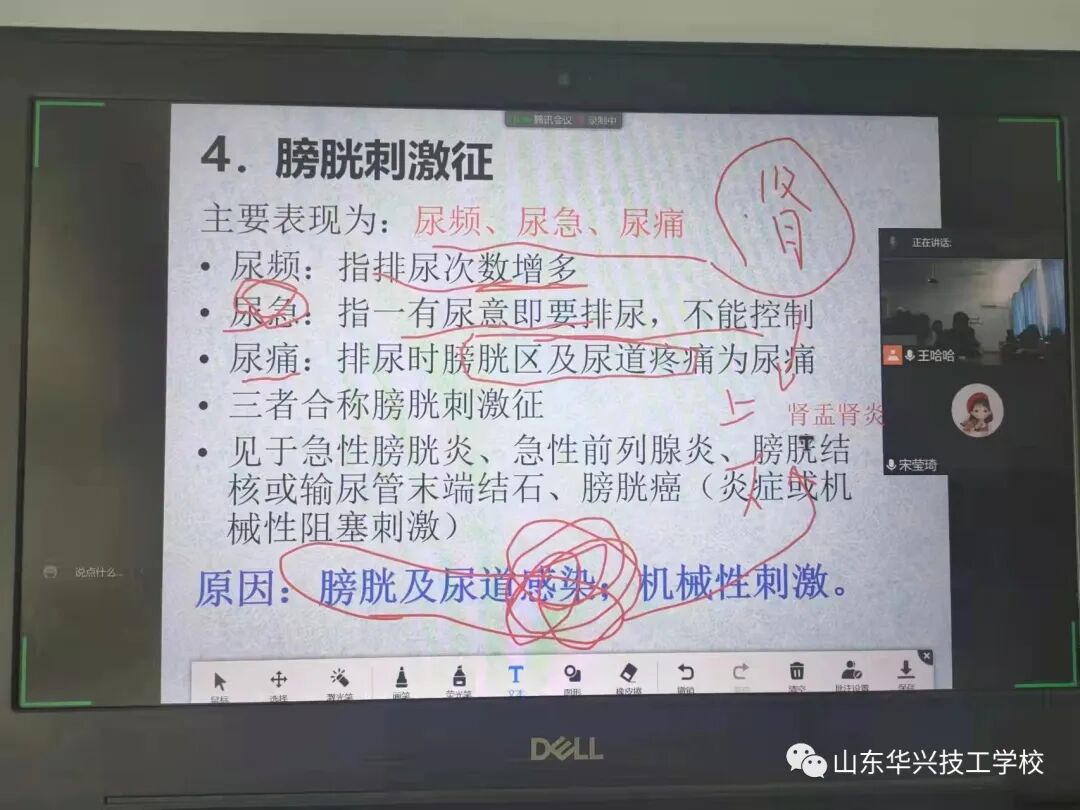 腾讯会议 录制中
4. 膀胱刺激征
肾
主要表现为：尿频、尿急、尿痛
• 尿频：指排尿次数增多
正在讲话:
• 尿急：指一有尿意即要排尿，不能控制
• 尿痛：排尿时膀胱区及尿道疼痛为尿痛
王哈哈
• 三者合称膀胱刺激征
上
肾盂肾炎
• 见于急性膀胱炎、急性前列腺炎、膀胱结
核或输尿管末端结石、膀胱癌（炎症或机
械性阻塞刺激）
下
宋莹琦
说点什么...
原因：膀胱及尿道感染；机械性刺激。
鼠标 选择 激光笔 画笔 荧光笔 T 文本 图形 橡皮擦 撤销 清空 批注设置 保存
DELL
山东华兴技工学校